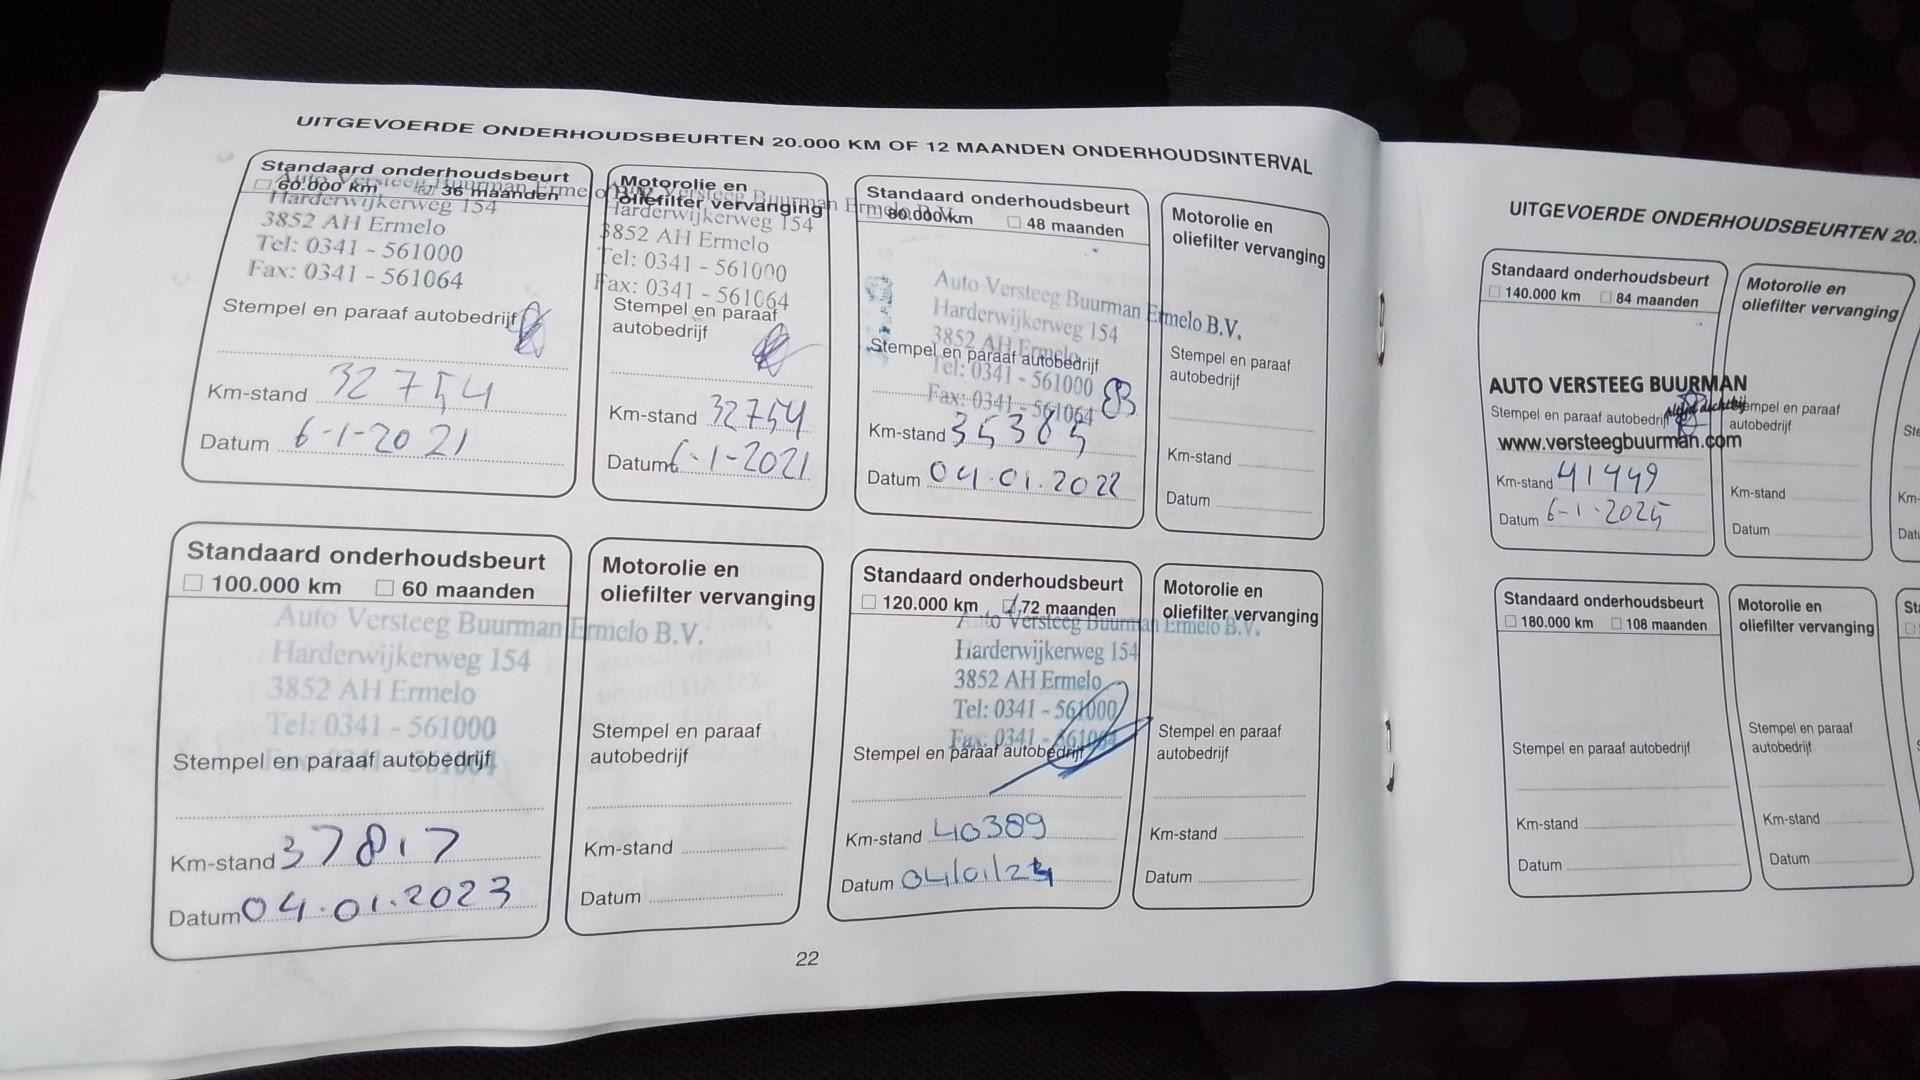 UITGEVOERDE ONDERHOUDSBEURTEN 20.000 KM OF 12 MAANDEN ONDERHOUDSINTERVAL
Standaard onderhoudsbeurt
60.000 km 36 maanden
Auto Versteeg Buurman Ermelo B.V.
Harderwijkerweg 154
3852 AH Ermelo
Tel: 0341 - 561000
Fax: 0341 - 561064
Stempel en paraaf autobedrijf
Km-stand 32754
Datum 6-1-2021
Motorolie en
oliefilter vervanging
Versteeg Buurman Ermelo B.V.
Harderwijkerweg 154
3852 AH Ermelo
Tel: 0341 - 561000
Fax: 0341 - 561064
Stempel en paraaf
autobedrijf
Km-stand 32754
Datum 6-1-2021
Standaard onderhoudsbeurt
80.000 km 48 maanden
Auto Versteeg Buurman Ermelo B.V.
Harderwijkerweg 154
3852 AH Ermelo
Stempel en paraaf autobedrijf
Tel: 0341 - 561000
Fax: 0341 - 561064
Km-stand 35385
Datum 04.01.2022
Motorolie en
oliefilter vervanging
Stempel en paraaf
autobedrijf
Km-stand
Datum
Standaard onderhoudsbeurt
100.000 km 60 maanden
Auto Versteeg Buurman Ermelo B.V.
Harderwijkerweg 154
3852 AH Ermelo
Tel: 0341 - 561000
Fax: 0341 - 561064
Stempel en paraaf autobedrijf
Km-stand 37817
Datum 04.01.2023
Motorolie en
oliefilter vervanging
Stempel en paraaf
autobedrijf
Km-stand
Datum
Standaard onderhoudsbeurt
120.000 km 72 maanden
Auto Versteeg Buurman Ermelo B.V.
Harderwijkerweg 154
3852 AH Ermelo
Tel: 0341 - 561000
Fax: 0341 - 561064
Stempel en paraaf autobedrijf
Km-stand 40389
Datum 04/01/24
Motorolie en
oliefilter vervanging
Stempel en paraaf
autobedrijf
Km-stand
Datum
22
UITGEVOERDE ONDERHOUDSBEURTEN 20.
Standaard onderhoudsbeurt
140.000 km 84 maanden
AUTO VERSTEEG BUURMAN
altijd dichtbij
Stempel en paraaf autobedrijf
www.versteegbuurman.com
Km-stand 41449
Datum 6-1-2025
Motorolie en
oliefilter vervanging
Stempel en paraaf
autobedrijf
Km-stand
Datum
Standaard onderhoudsbeurt
180.000 km 108 maanden
Stempel en paraaf autobedrijf
Km-stand
Datum
Motorolie en
oliefilter vervanging
Stempel en paraaf
autobedrijf
Km-stand
Datum